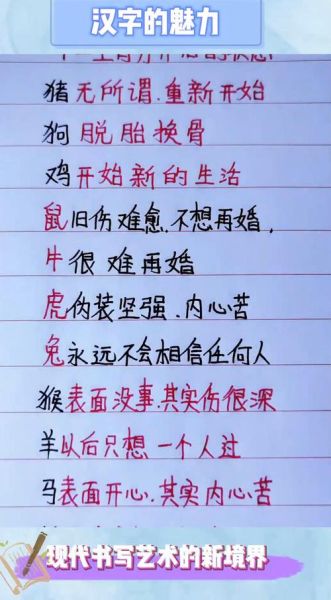 汉字的魅力
猪无所谓.重新开始
狗脱胎换骨
鸡开始新的生活
鼠旧伤难愈.不想再婚,
牛很难再婚
虎伪装坚强.内心苦
兔永远不会相信任何人
猴表面没事.其实伤很深
羊以后只想一个人过
马表面开心.其实内心苦
现代书写艺术的新境界